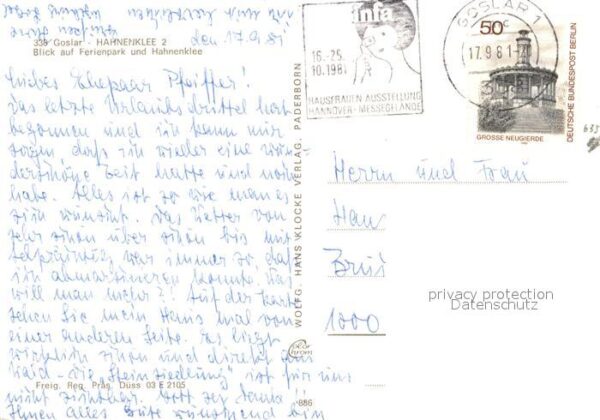 338 Goslar - HAHNENKLEE 2
Blick auf Ferienpark und Hahnenklee
den 17.9.81
Liebes Ehepaar Pfeiffer!
Das letzte Urlaubsdrittel hat
begonnen und ich kann nur
sagen daß ich wieder eine wun-
derschöne Zeit hatte und noch
habe. Alles ist so wie man es
sich wünscht. Das Wetter von
sehr schön über schön bis mit
war immer so daß
ich abmarschieren konnte. Was
will man mehr? Auf der Karte
sehen Sie mein Haus mal von
einer anderen Seite. Es liegt
wirklich schön und direkt am
Wald - die "Steinsiedlung" ist für uns
nicht sichtbar. Gott sey Dank!
Ihnen alles Gute wünschend bin
Freig. Reg. Präs. Düss 03 E 2105
WOLFG. HANS KLOCKE VERLAG, PADERBORN
886
infa
16.-25.
10.1981
HAUSFRAUEN-AUSSTELLUNG
HANNOVER-MESSEGELÄNDE
GOSLAR 1
17.9.81
50c
GROSSE NEUGIERDE
DEUTSCHE BUNDESPOST BERLIN
635
Herrn und Frau
Hans
1000
privacy protection
Datenschutz